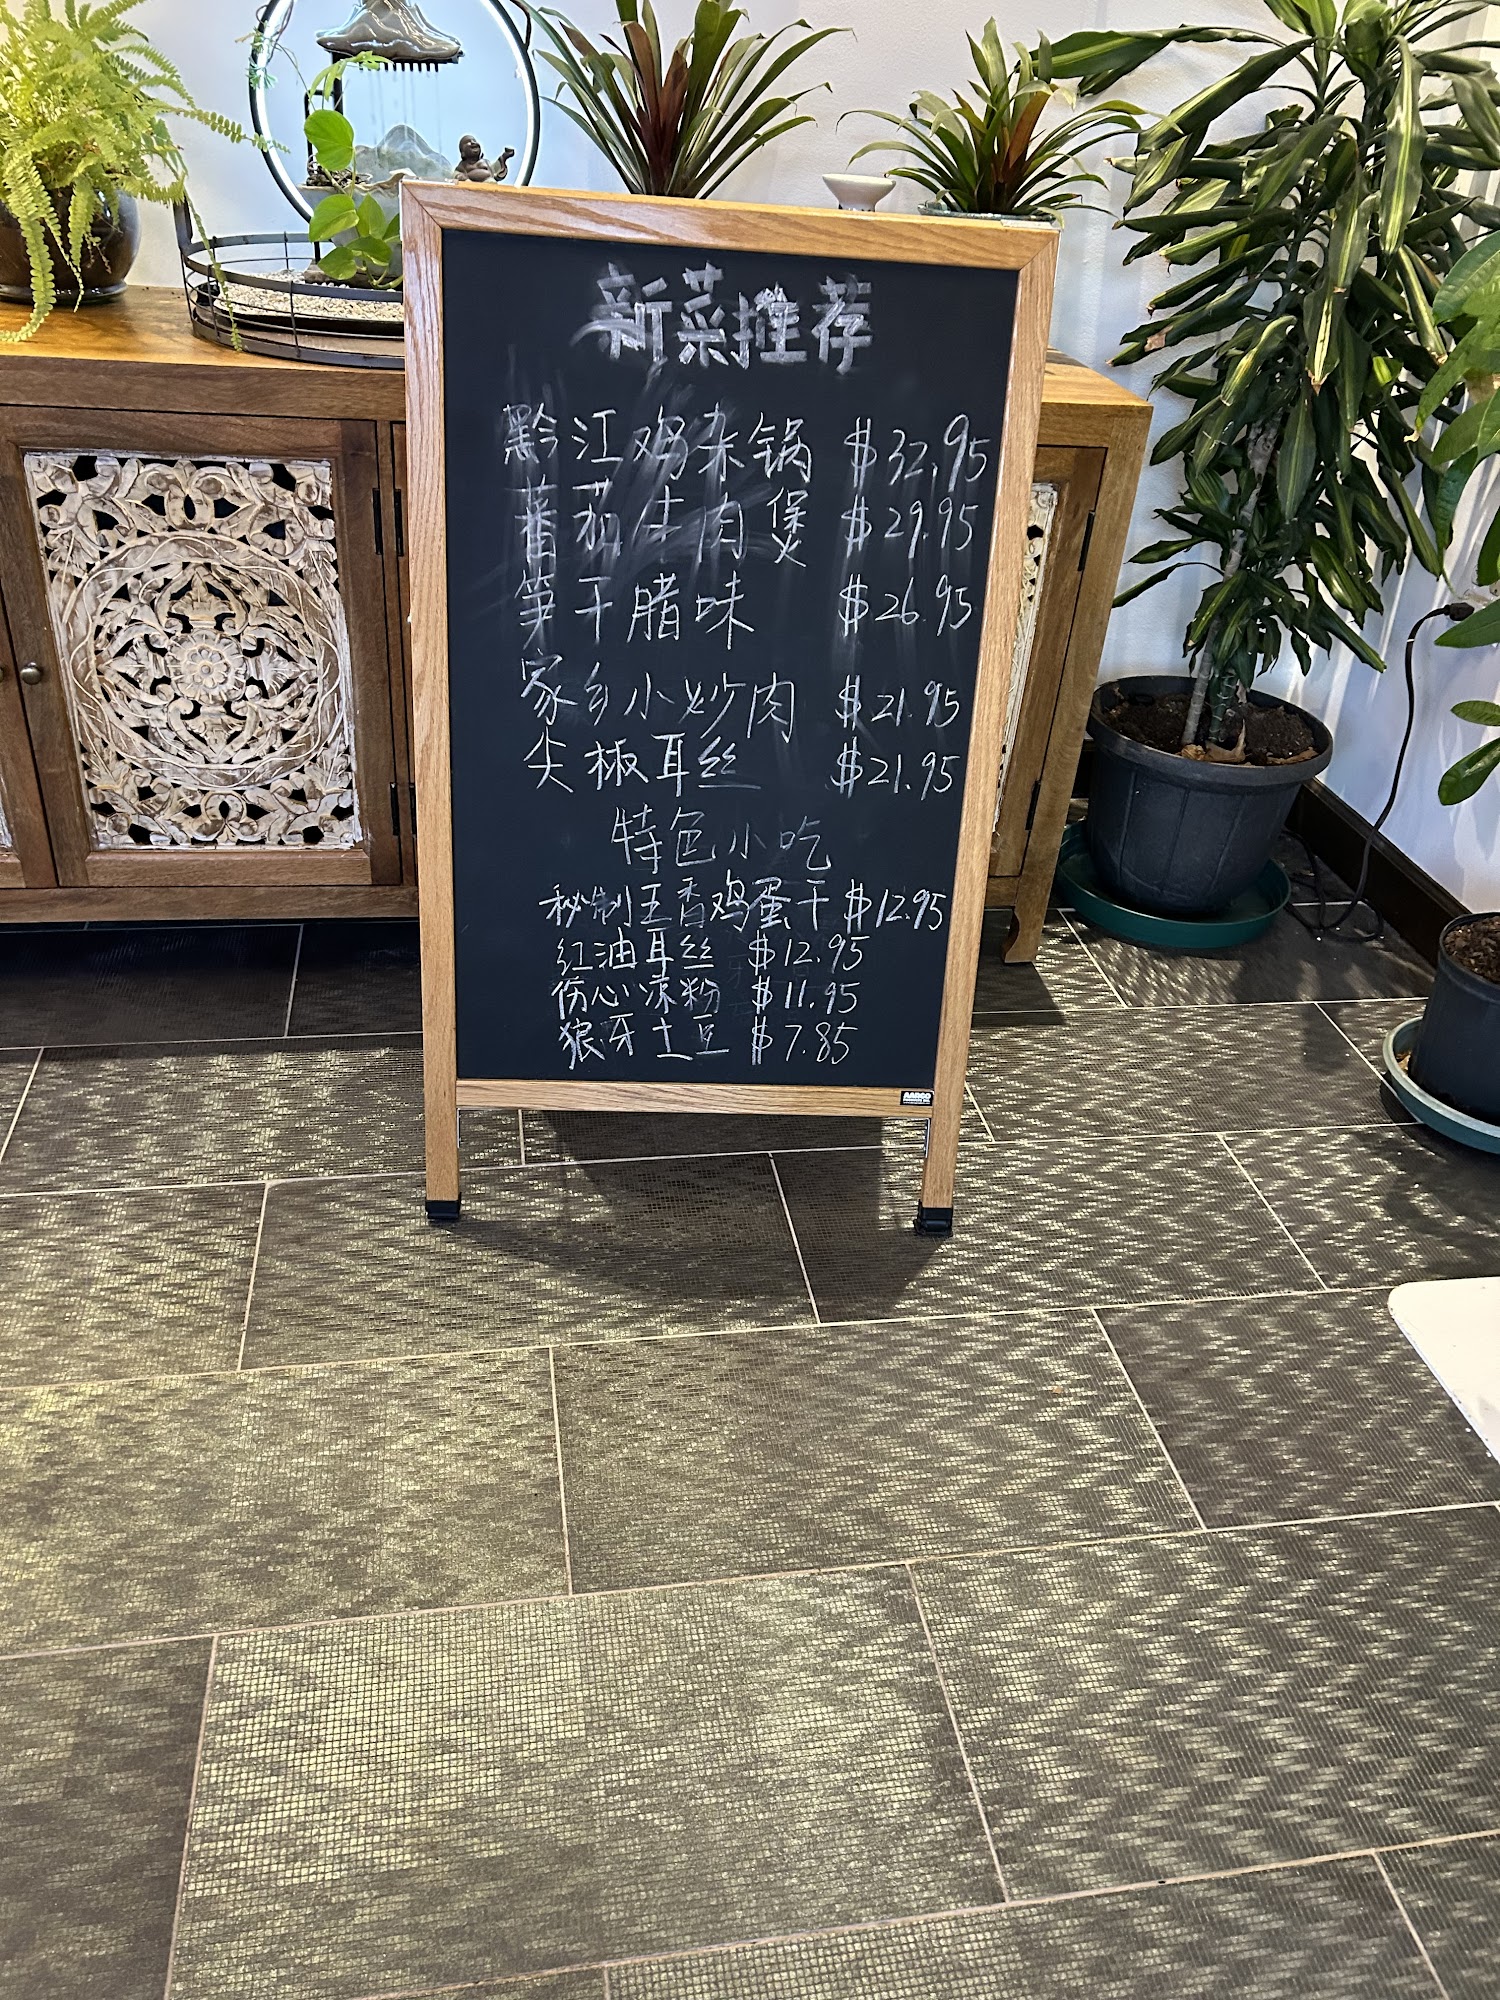 新菜推荐
黔江鸡杂锅 $32.95
蕃茄牛肉煲 $29.95
笋干腊味 $26.95
家乡小炒肉 $21.95
尖椒耳丝 $21.95
特色小吃
秘制五香鸡蛋干 $12.95
红油耳丝 $12.95
伤心凉粉 $11.95
狼牙土豆 $7.85
AARCO